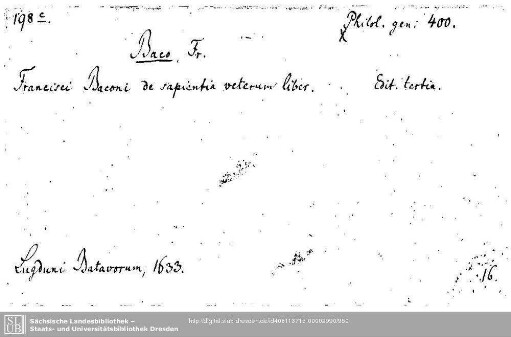 198 c.
Philol. gen: 400.
Baco, Fr.
Francisci Baconi de sapientia veterum liber. Edit. tertia.
Lugduni Batavorum, 1633.
16.
SLUB
Sächsische Landesbibliothek –
Staats- und Universitätsbibliothek Dresden